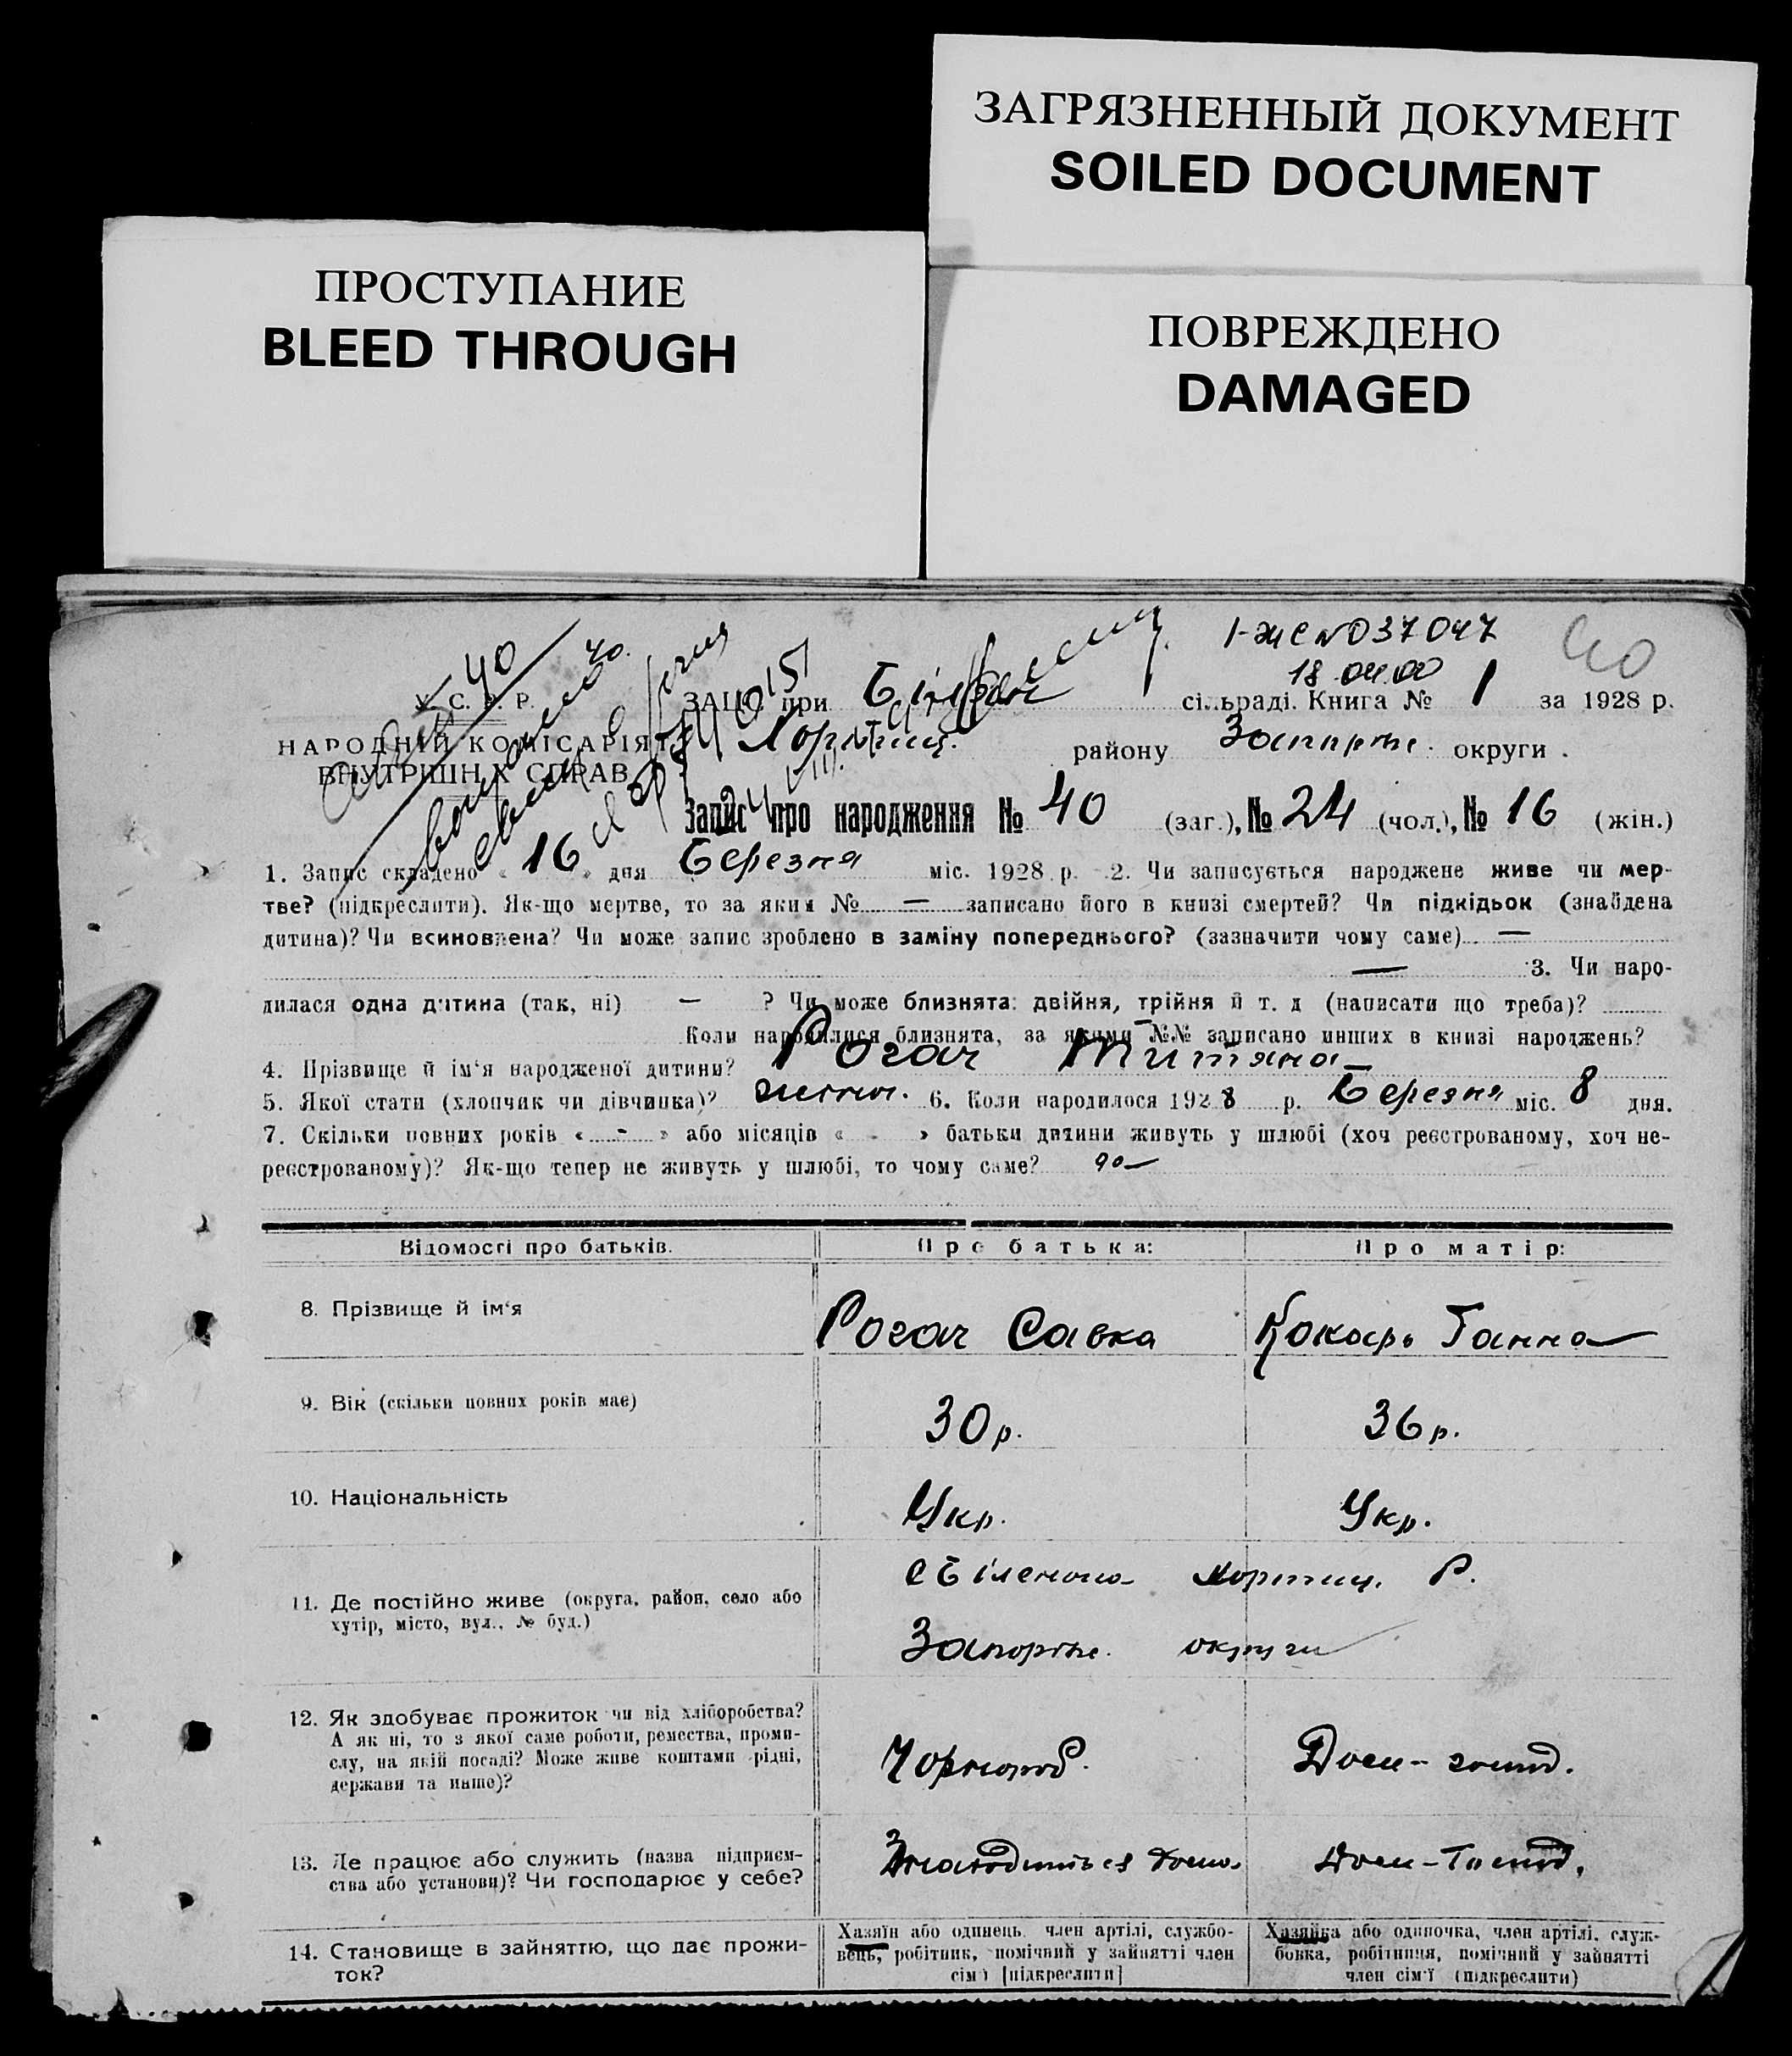 ЗАГРЯЗНЕННЫЙ ДОКУМЕНТ
SOILED DOCUMENT
ПРОСТУПАНИЕ
BLEED THROUGH
ПОВРЕЖДЕНО
DAMAGED
40
І-ЖС №037047
18 04 00
40
У. С. Р. Р.
ЗАЦС при сільраді. Книга № 1 за 1928 р.
НАРОДНІЙ КОМІСАРІЯТ
ВНУТРІШНІХ СПРАВ
Хортиц. району Запоріж. округи.
Запис про народження № 40 (заг.), № 24 (чол.), № 16 (жін.)
1. Запис складено « 16 » дня Березня міс. 1928 р. 2. Чи записується народжене живе чи мер-
тве? (підкреслити). Як-що мертве, то за яким № — записано його в книзі смертей? Чи підкідьок (знайдена
дитина)? Чи всиновлена? Чи може запис зроблено в заміну попереднього? (зазначити чому саме) —
— 3. Чи наро-
дилася одна дитина (так, ні) — ? Чи може близнята: двійня, трійня й т. д (написати що треба)?
Коли народилися близнята, за якими №№ записано инших в книзі народжень?
4. Прізвище й ім'я народженої дитини? Рогач Титяна
5. Якої стати (хлопчик чи дівчинка)? 6. Коли народилося 1928 р. Березня міс. 8 дня.
7. Скільки повних років « - » або місяців « - » батьки дитини живуть у шлюбі (хоч реєстрованому, хоч не-
реєстрованому)? Як-що тепер не живуть у шлюбі, то чому саме?
Відомості про батьків. Про батька: Про матір:
8. Прізвище й ім'я Рогач Савка Кокарь Ганна
9. Вік (скільки повних років має) 30 р. 36 р.
10. Національність Укр. Укр.
11. Де постійно живе (округа, район, село або
хутір, місто, вул., № буд.)
с Біленька Хортиц. Р.
Запоріж. округи
12. Як здобуває прожиток чи від хліборобства?
А як ні, то з якої саме роботи, ремества, проми-
слу, на якій посаді? Може живе коштами рідні,
держави та инше)?
Чорнороб. Дом-госпо.
13. Де працює або служить (назва підприєм-
ства або установи)? Чи господарює у себе?
Знаходиться дома. Дом-Госпо.
14. Становище в зайняттю, що дає прожи-
ток?
Хазяїн або одинець, член артілі, службо-
вець, робітник, помічний у зайнятті член
сім'ї [підкреслити]
Хазяйка або одиночка, член артілі, служ-
бовка, робітниця, помічний у зайнятті
член сім'ї (підкреслити)